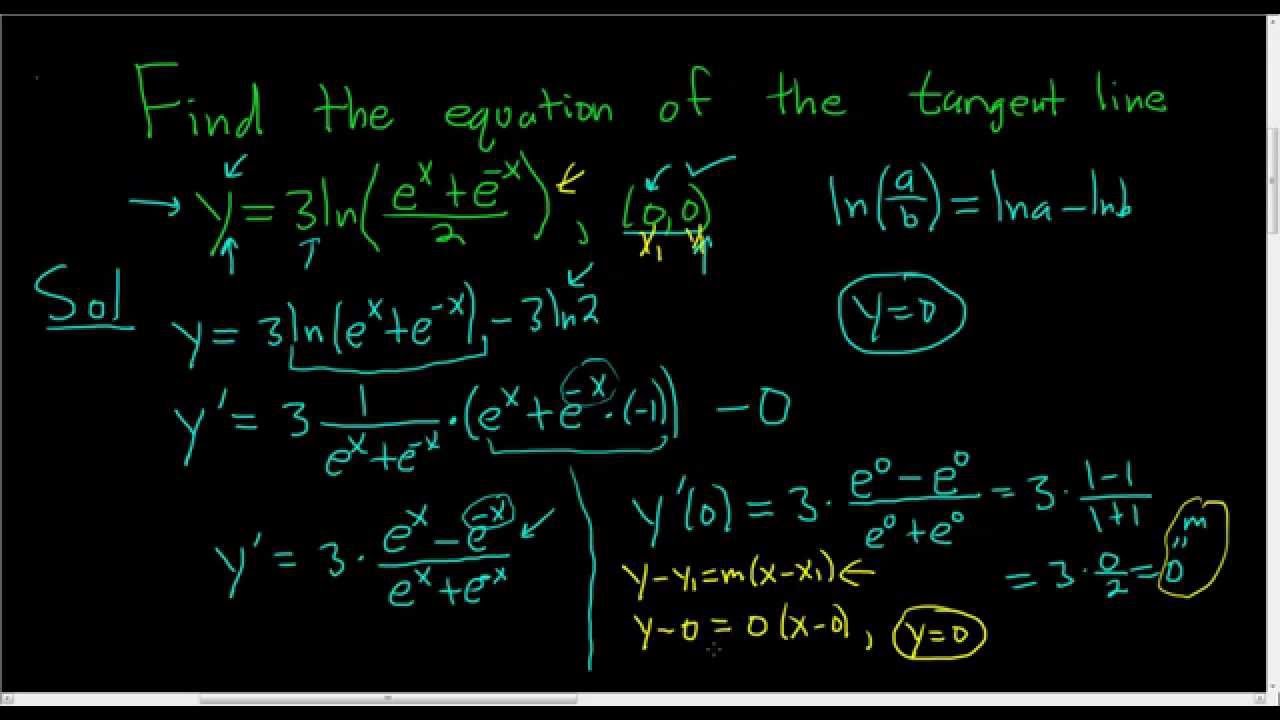 Find the equation of the tangent line
y = 3ln((e^x + e^-x)/2), (0,0)
x₁ y₁
ln(a/b) = ln a - ln b
Sol
y = 3ln(e^x + e^-x) - 3ln2
y = 0
y' = 3 1/(e^x + e^-x) · (e^x + e^-x · (-1)) - 0
y' = 3 · (e^x - e^-x)/(e^x + e^-x)
y'(0) = 3 · (e^0 - e^0)/(e^0 + e^0) = 3 · (1-1)/(1+1)
= 3 · 0/2 = 0
" m
y - y₁ = m(x - x₁)
y - 0 = 0(x - 0), y = 0